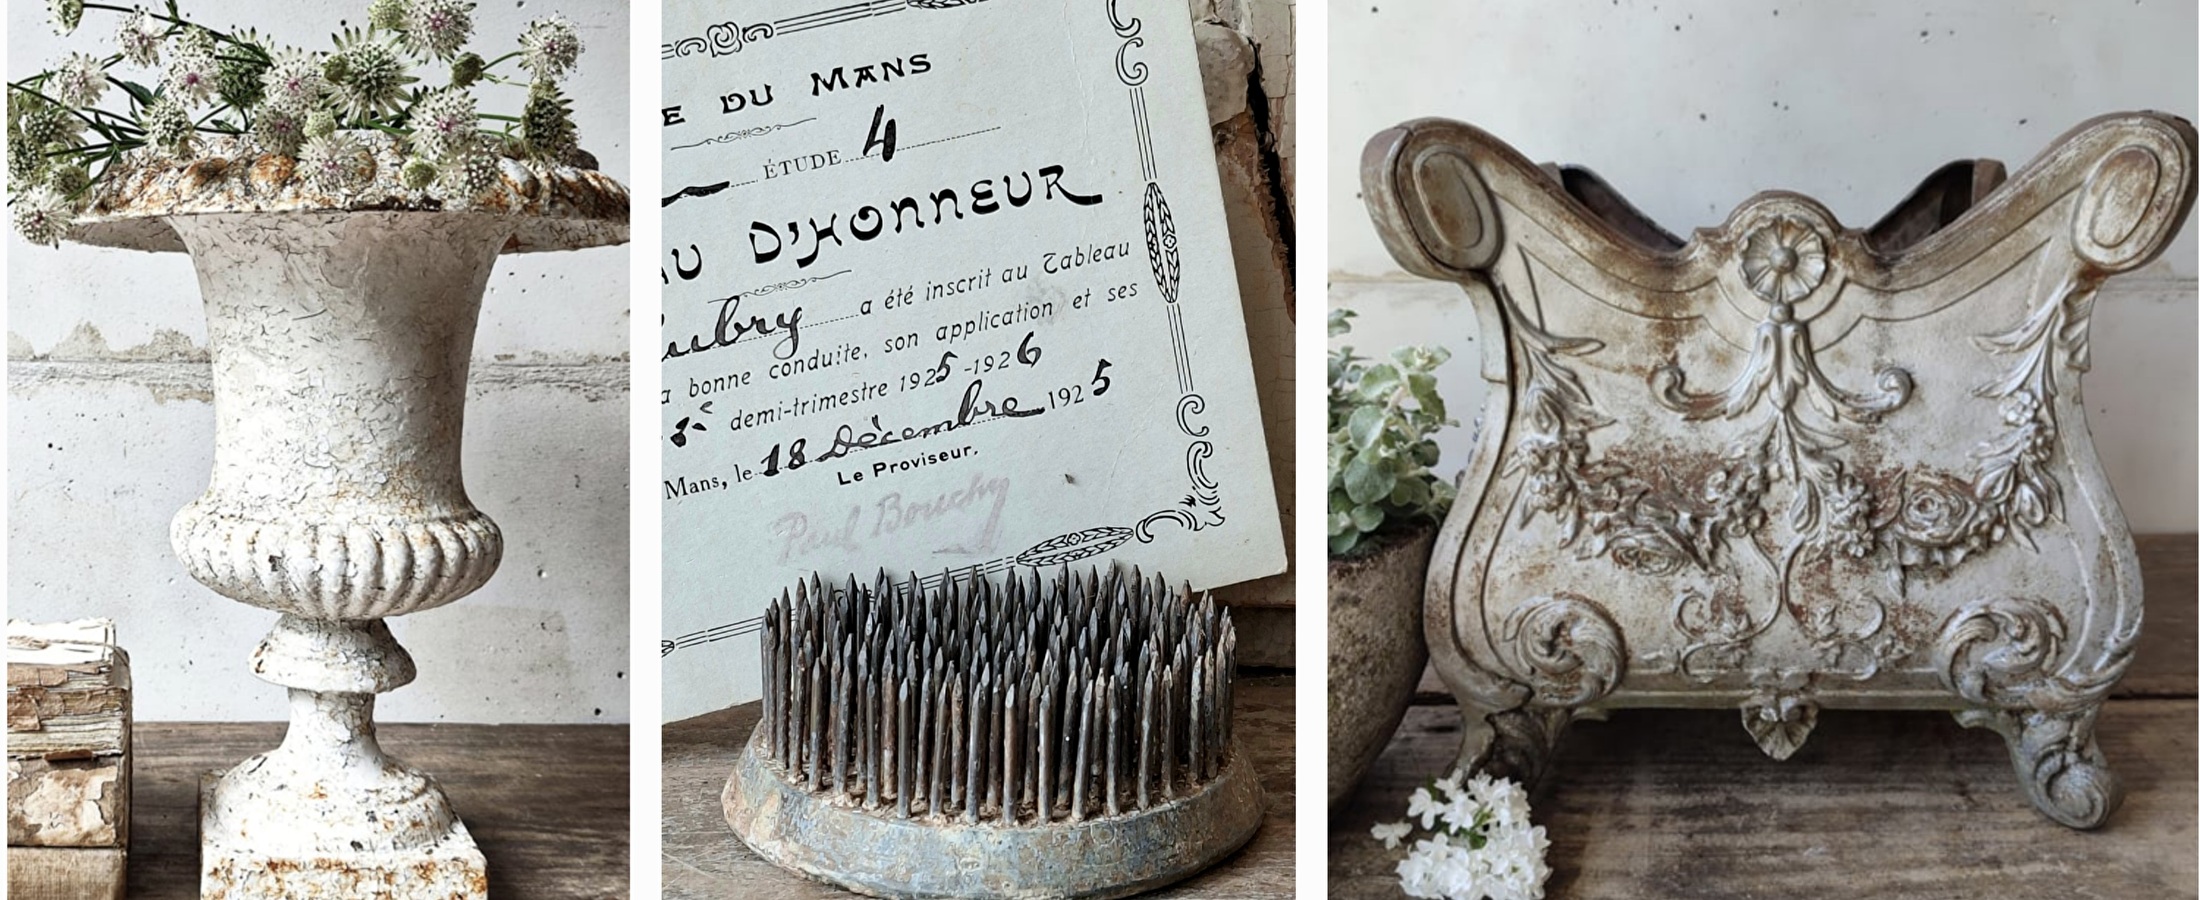 E DU MANS
ÉTUDE 4
AU D'HONNEUR
ubry a été inscrit au Tableau
a bonne conduite, son application et ses
demi-trimestre 1925-1926
Mans, le 18 Décembre 1925
Le Proviseur,
Paul Bouchy